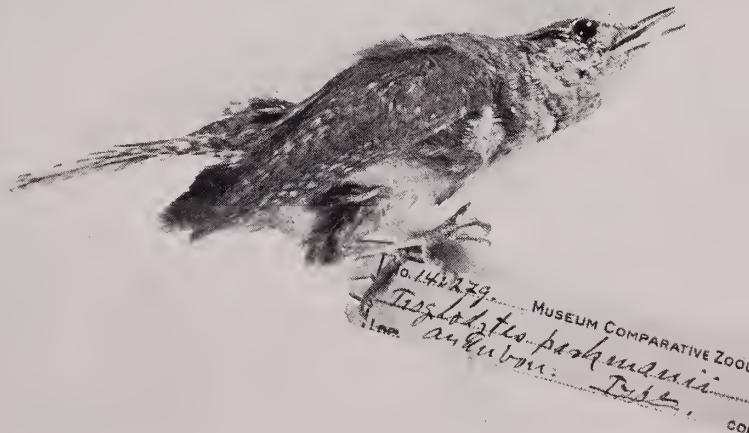 No. 142279. MUSEUM COMPARATIVE ZOOL
Troglodytes parkmanii
Audubon. Type.